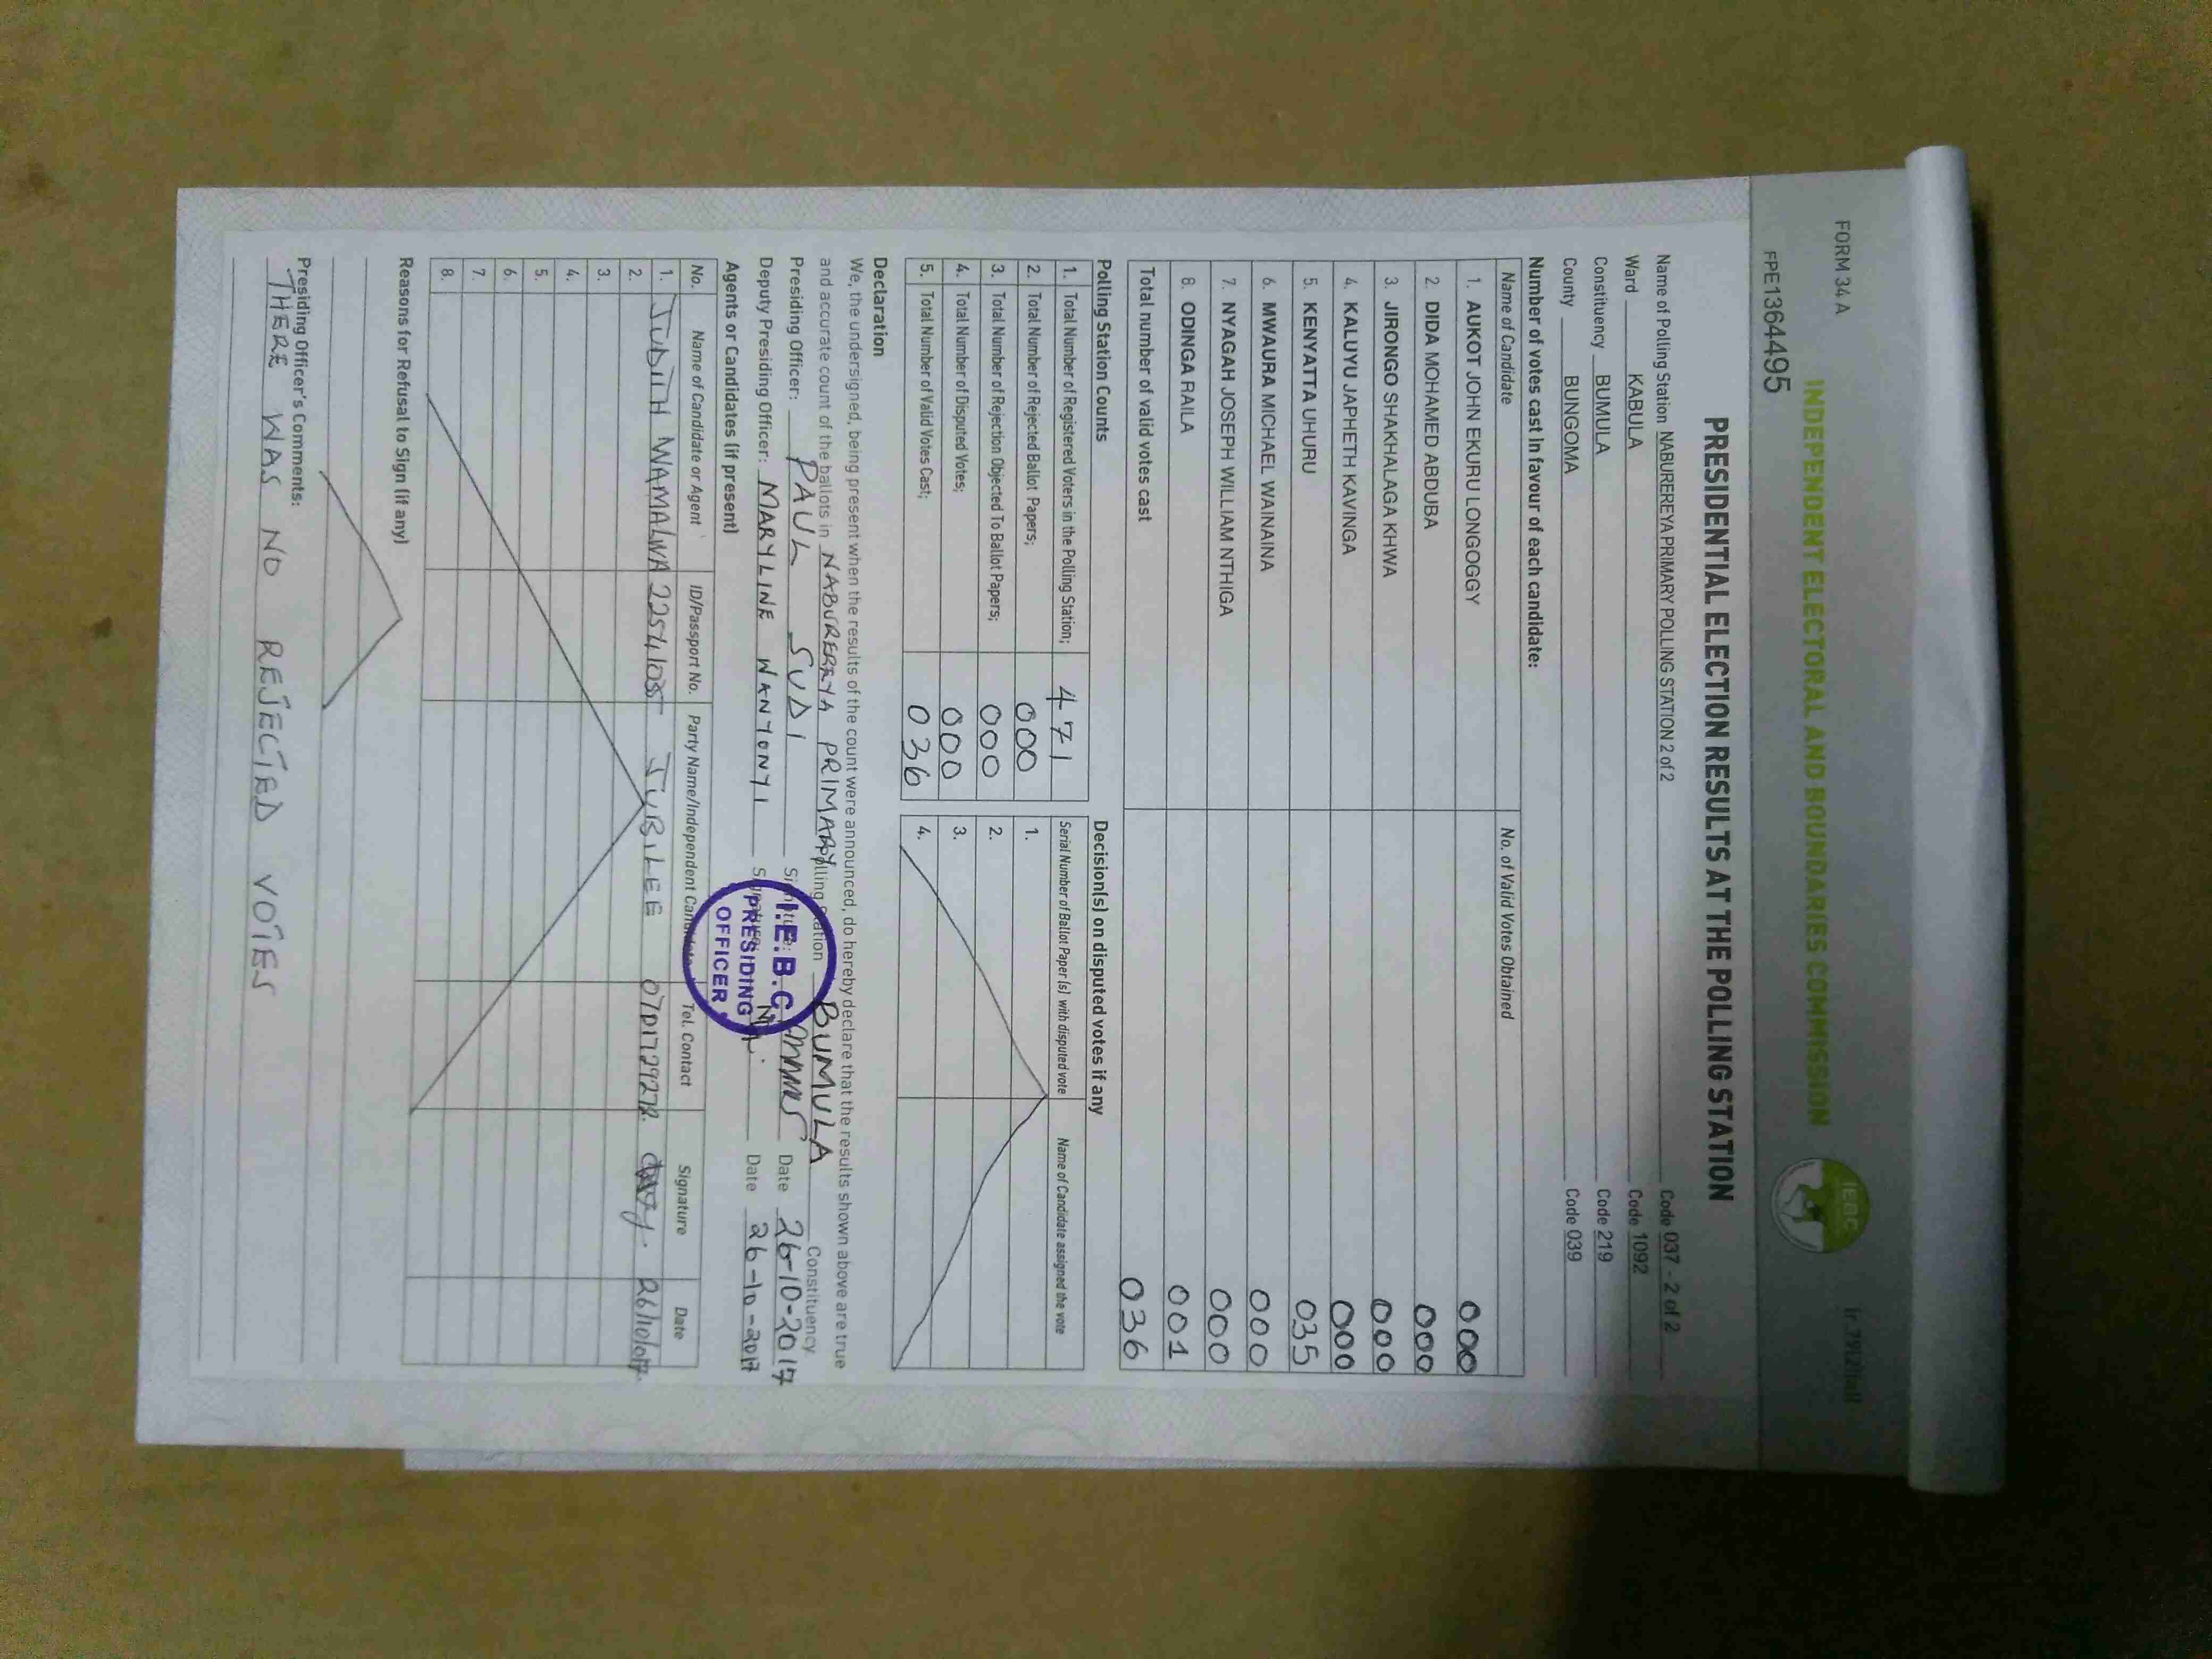 FORM 34 A
INDEPENDENT ELECTORAL AND BOUNDARIES COMMISSION
IEBC
FPE1364495
PRESIDENTIAL ELECTION RESULTS AT THE POLLING STATION
Name of Polling Station NABUREREYA PRIMARY POLLING STATION 2 of 2 Code 037 - 2 of 2
Ward KABULA Code 1092
Constituency BUMULA Code 219
County BUNGOMA Code 039
Number of votes cast in favour of each candidate:
Name of Candidate No. of Valid Votes Obtained
1. AUKOT JOHN EKURU LONGOGGY 000
2. DIDA MOHAMED ABDUBA 000
3. JIRONGO SHAKHALAGA KHWA 000
4. KALUYU JAPHETH KAVINGA 000
5. KENYATTA UHURU 035
6. MWAURA MICHAEL WAINAINA 000
7. NYAGAH JOSEPH WILLIAM NTHIGA 000
8. ODINGA RAILA 001
Total number of valid votes cast 036
Polling Station Counts Decision(s) on disputed votes if any
1. Total Number of Registered Voters in the Polling Station; 471 Serial Number of Ballot Paper (s) with disputed vote Name of Candidate assigned the vote
2. Total Number of Rejected Ballot Papers; 000 1.
3. Total Number of Rejection Objected To Ballot Papers; 000 2.
4. Total Number of Disputed Votes; 000 3.
5. Total Number of Valid Votes Cast; 036 4.
Declaration
We, the undersigned, being present when the results of the count were announced, do hereby declare that the results shown above are true
and accurate count of the ballots in NABURERRYA PRIMARY polling station BUMULA Constituency.
Presiding Officer: PAUL SUDI Signature: Date 26-10-2017
Deputy Presiding Officer: MARYLINE WANYONYI Signature: Date 26-10-2017
I.E.B.C
PRESIDING
OFFICER
Agents or Candidates (if present)
No. Name of Candidate or Agent ID/Passport No. Party Name/Independent Candidate Tel. Contact Signature Date
1. JUDITH WAMALWA 22541035 JUBILEE 0701729272
2.
3.
4.
5.
6.
7.
8.
Reasons for Refusal to Sign (if any)
Presiding Officer's Comments:
THERE WAS NO REJECTED VOTES